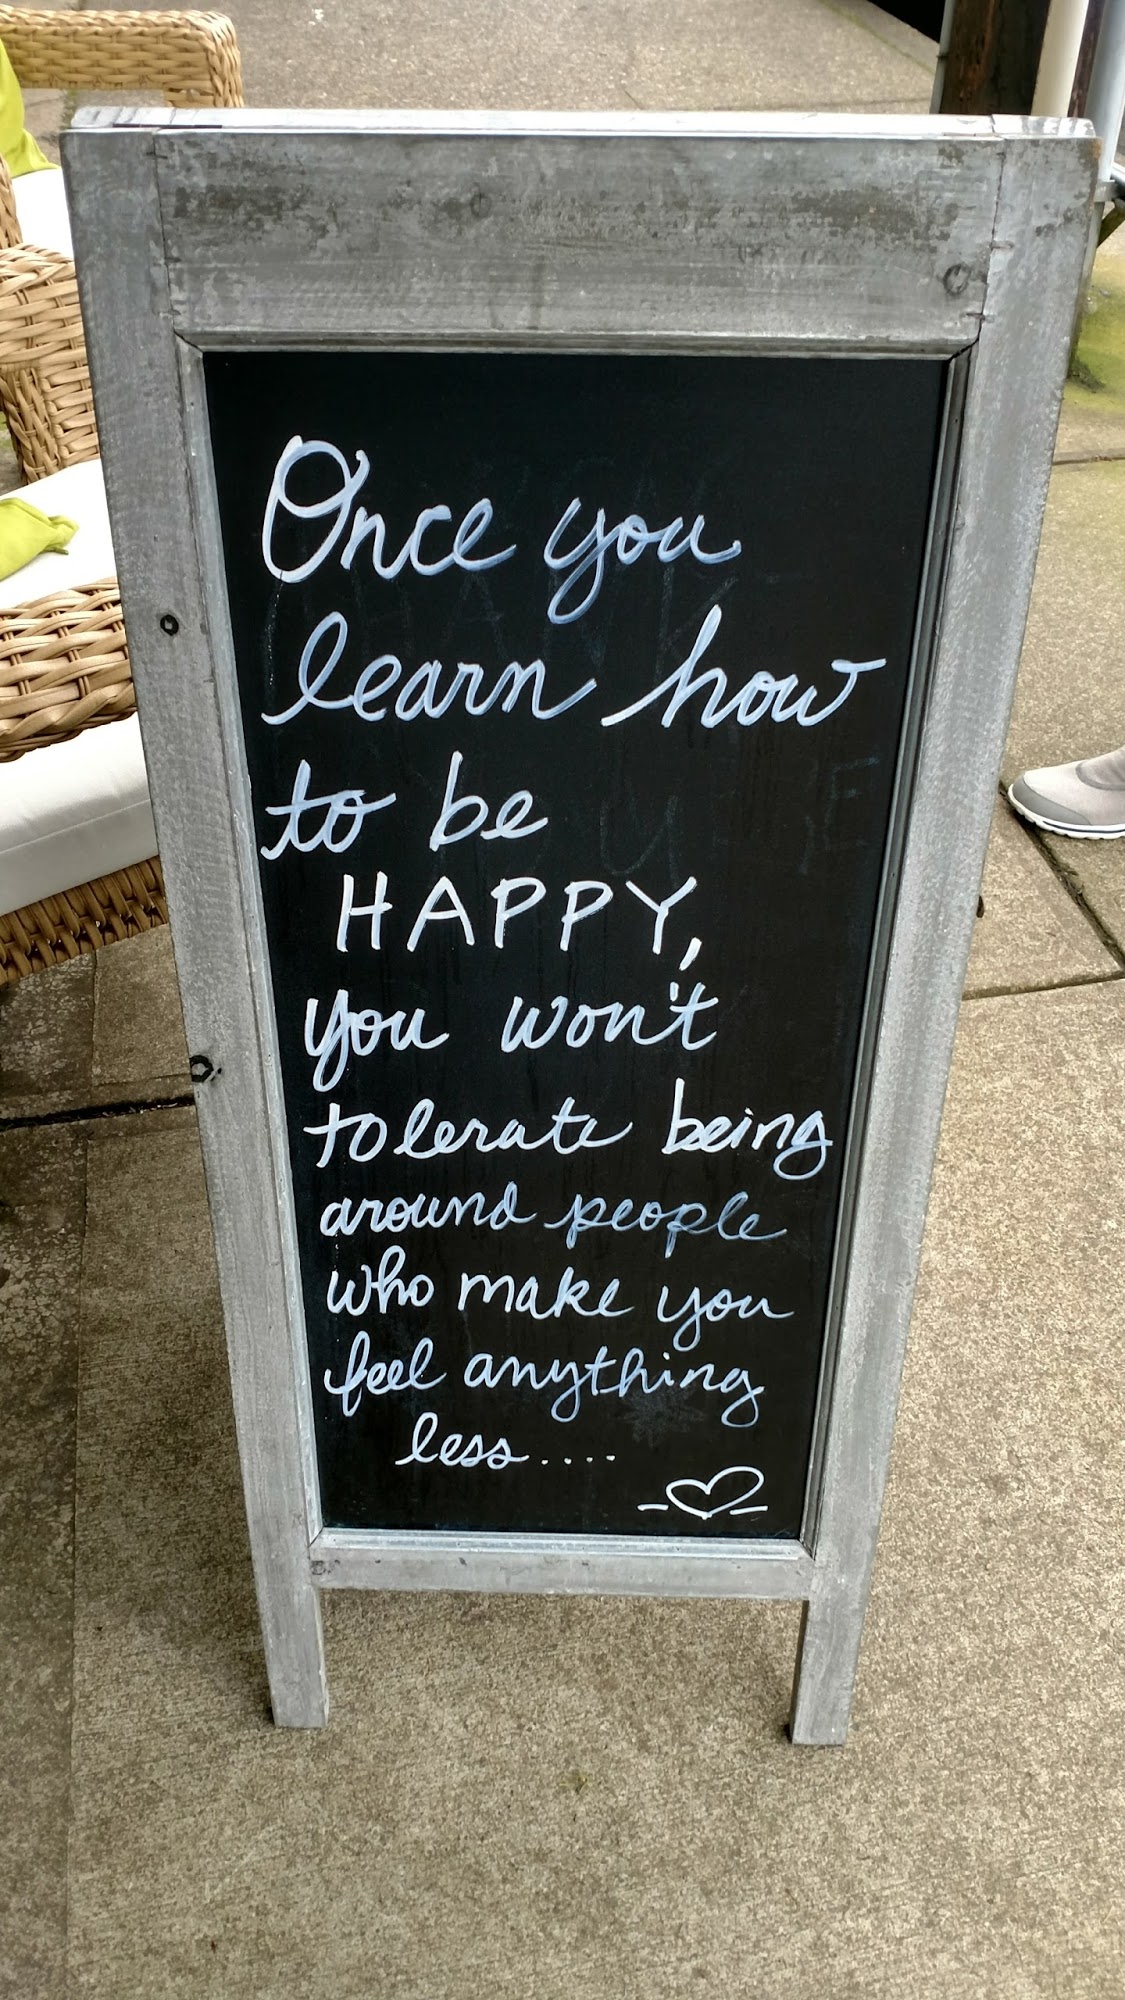 Once you
learn how
to be
HAPPY,
you won't
tolerate being
around people
who make you
feel anything
less....